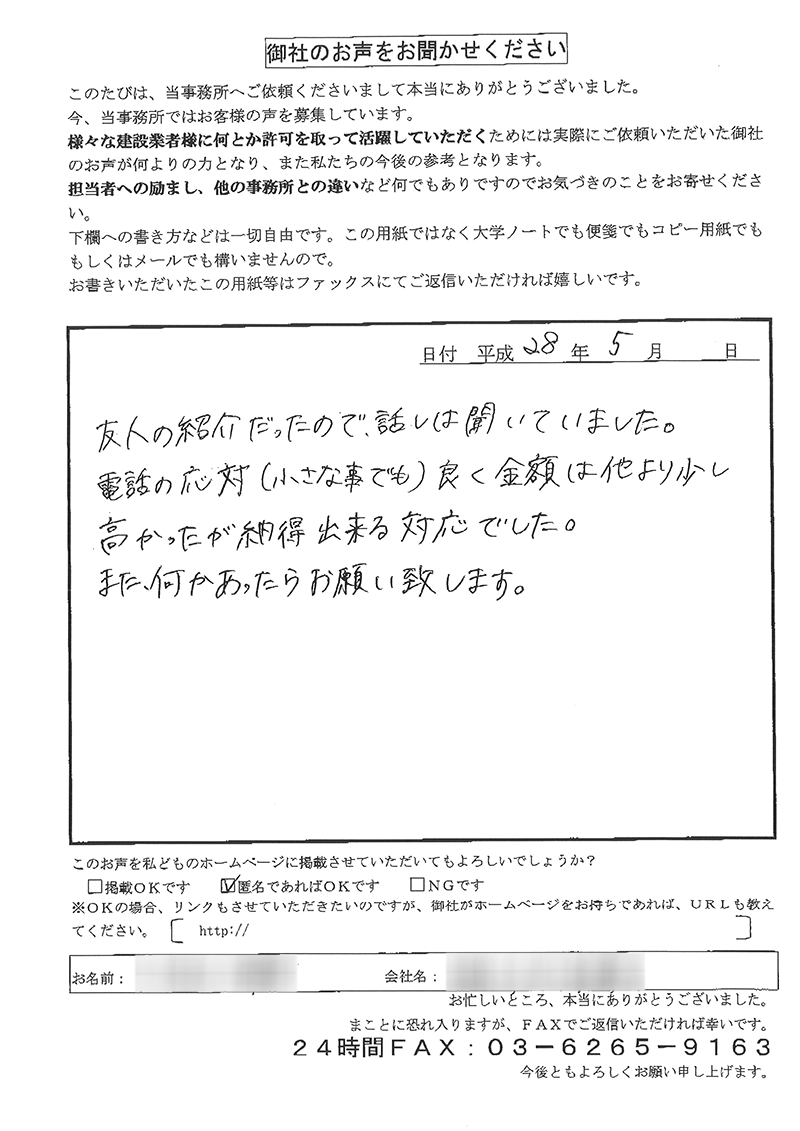 御社のお声をお聞かせください
このたびは、当事務所へご依頼くださいまして本当にありがとうございました。
今、当事務所ではお客様の声を募集しています。
様々な建設業者様に何とか許可を取って活躍していただくためには実際にご依頼いただいた御社
のお声が何よりの力となり、また私たちの今後の参考となります。
担当者への励まし、他の事務所との違いなど何でもありですのでお気づきのことをお寄せくださ
い。
下欄への書き方などは一切自由です。この用紙ではなく大学ノートでも便箋でもコピー用紙でも
もしくはメールでも構いませんので。
お書きいただいたこの用紙等はファックスにてご返信いただければ嬉しいです。
日付 平成 28 年 5 月 日
友人の紹介だったので、話しは聞いていました。
電話の応対(小さな事でも)良く金額は他より少し
高かったが納得出来る対応でした。
また、何かあったらお願い致します。
このお声を私どものホームページに掲載させていただいてもよろしいでしょうか?
□掲載OKです ☑匿名であればOKです □NGです
※OKの場合、リンクもさせていただきたいのですが、御社がホームページをお持ちであれば、URLも教え
てください。 [ http:// ]
お名前: 会社名:
お忙しいところ、本当にありがとうございました。
まことに恐れ入りますが、FAXでご返信いただければ幸いです。
24時間FAX:03-6265-9163
今後ともよろしくお願い申し上げます。